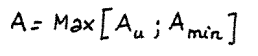 A = Max [ Au ; Amin ]